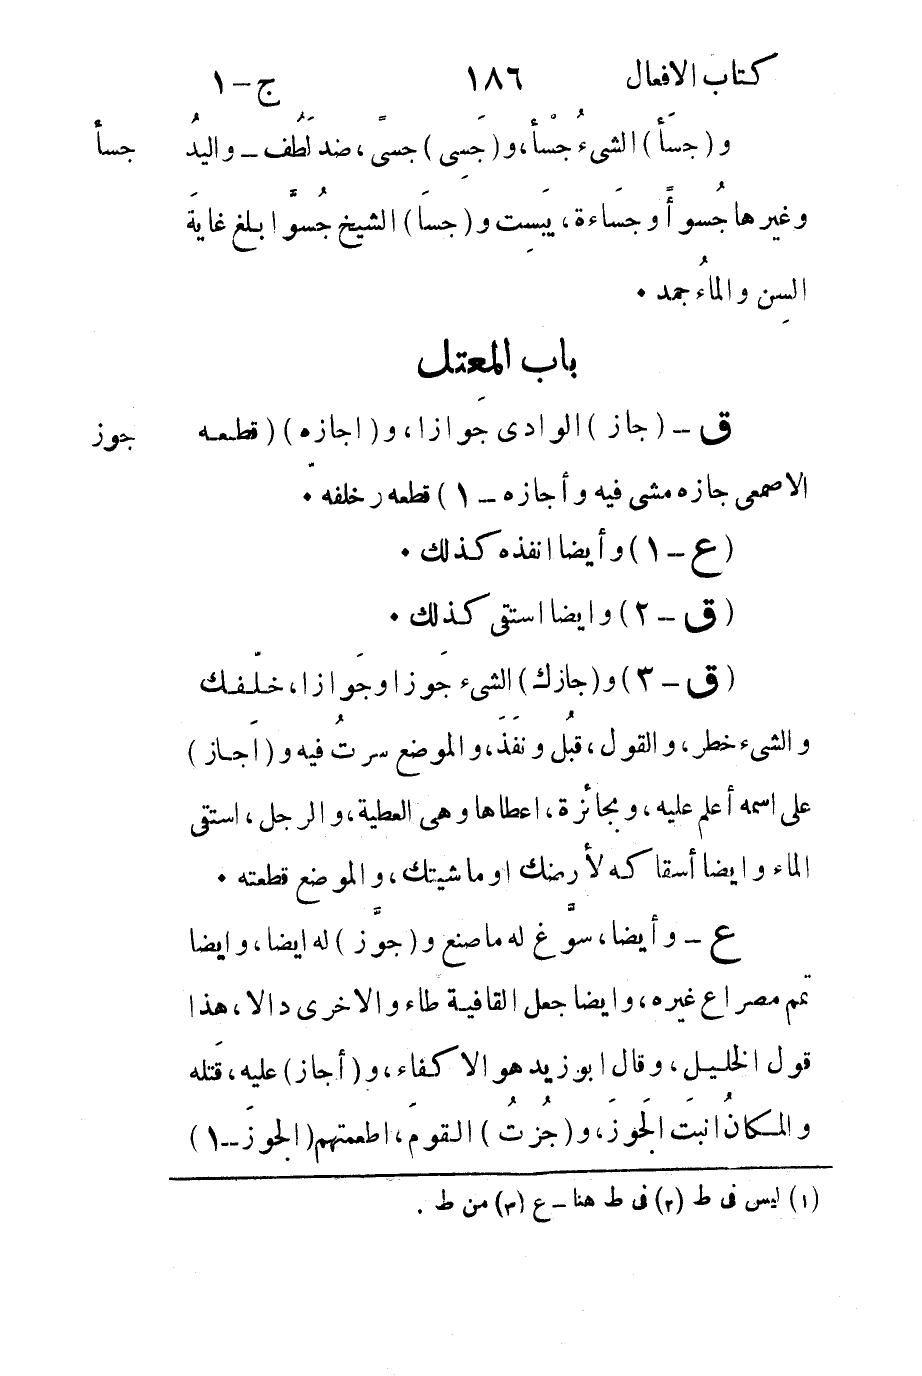 كتاب الافعال ١٨٦ ج-١
و (جسَأَ) الشىءُ جُسْأً، و (جَسِى) جسًى، ضد لَطُف - واليدُ جسأ
وغيرها جُسوأً وجسَاءة، يَبِست و (جسَا) الشيخ جُسُوًّا بلغ غايةَ
السِن والماءُ جمد ٠
باب المعتل
ق - (جاز) الوادى جَوازا، و (اجازه) (قطعه جوز
الاصمعى جازه مشى فيه وأجازه - ١) قطعه وخلّفه ٠
(ع - ١) وأيضا انفذه كذلك ٠
(ق - ٢) وايضا استقى كذلك ٠
(ق - ٣) و (جازك) الشىء جَوزا وجَوازا، خلّفك
والشىء خطر، والقول، قبُل ونفَذَ، والموضع سرتُ فيه و (اَجاز)
على اسمه أعلم عليه، وبجائزة، اعطاها وهى العطية، والرجل، استقى
الماء وايضا أسقاكه لأرضك او ماشيتك، والموضع قطعته ٠
ع - وأيضا، سوَّغ له ماصنع و (جوَّز) له ايضا، وايضا
تمم مصراع غيره، وايضا جعل القافية طاء والاخرى دالا، هذا
قول الخليل، وقال ابو زيد هو الاكفاء، و (أجاز) عليه، قَتله
والمكانُ انبتَ الجَوزَ، و (جُزتُ) القومَ، اطعمتهم (الجوزَ--١)
(١) ليس فى ط (٢) فى ط هنا - ع (٣) من ط .